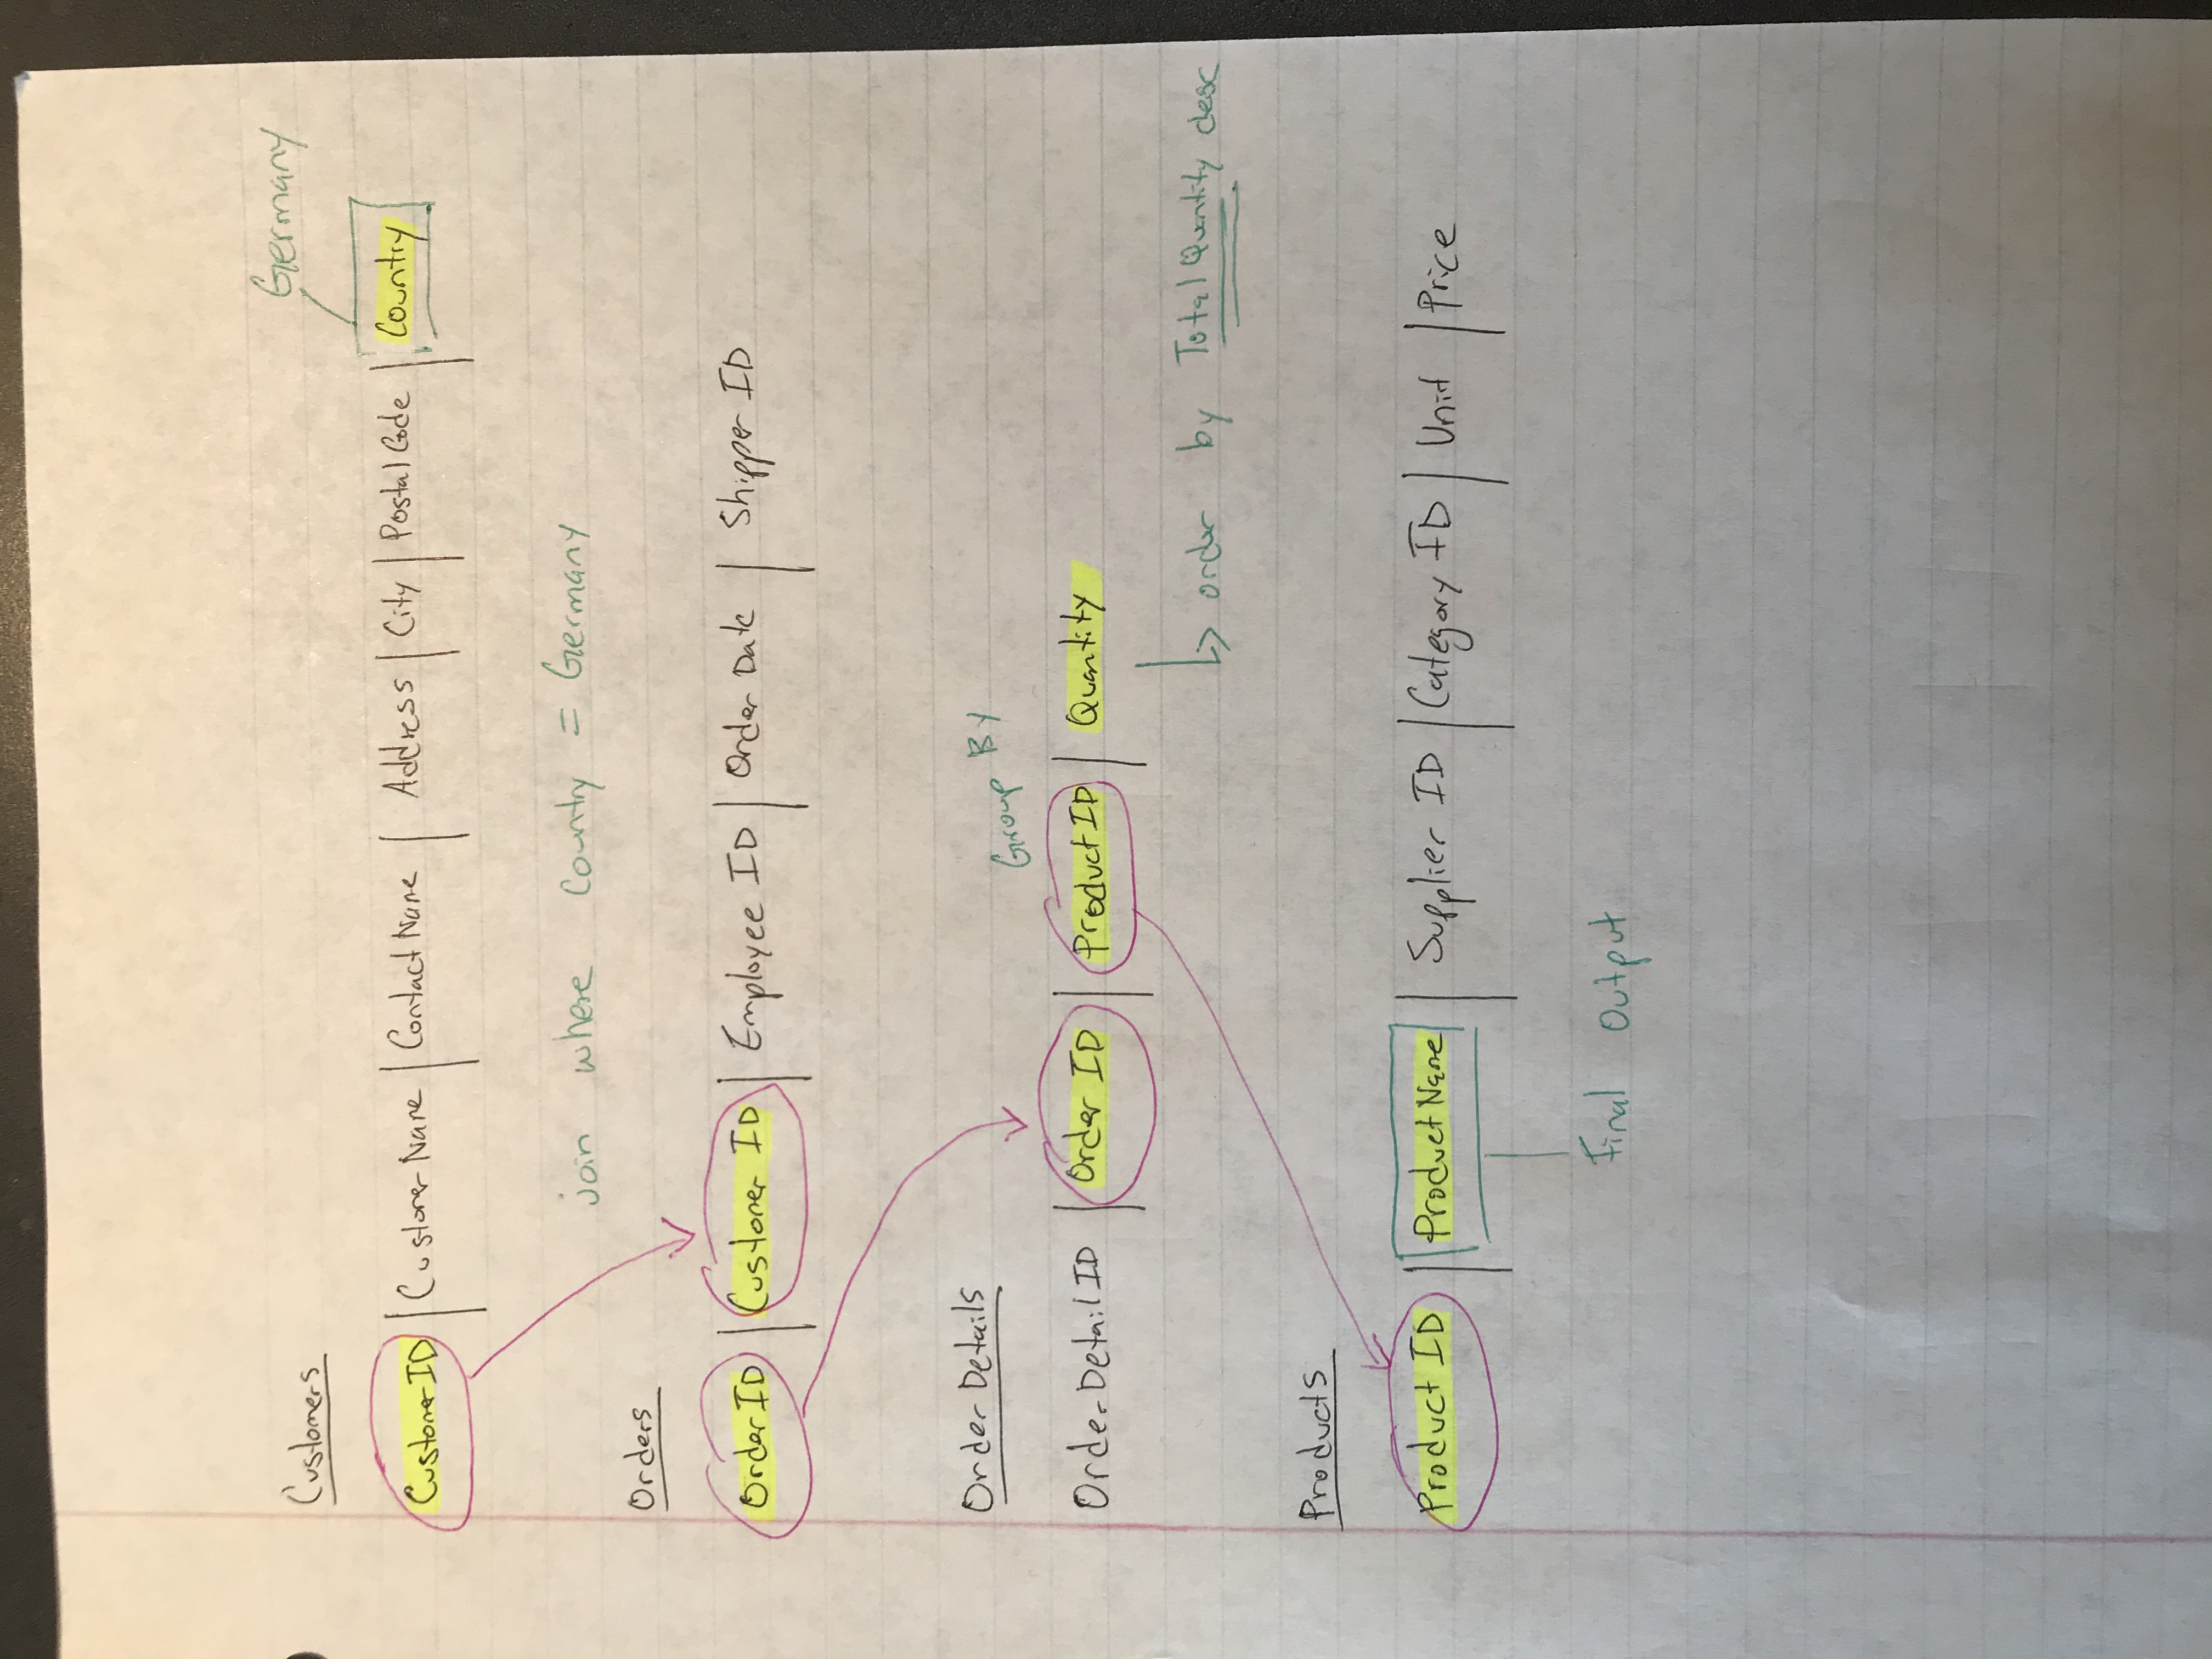 Germany
Customers
CustomerID | CustomerName | ContactName | Address | City | PostalCode | Country
join where Country = Germany
Orders
OrderID | Customer ID | Employee ID | Order Date | Shipper ID
Order Details
Group By
OrderDetailID | Order ID | ProductID | Quantity
order by TotalQuantity desc
Products
Product ID | ProductName | Supplier ID | Category ID | Unit | Price
Final Output